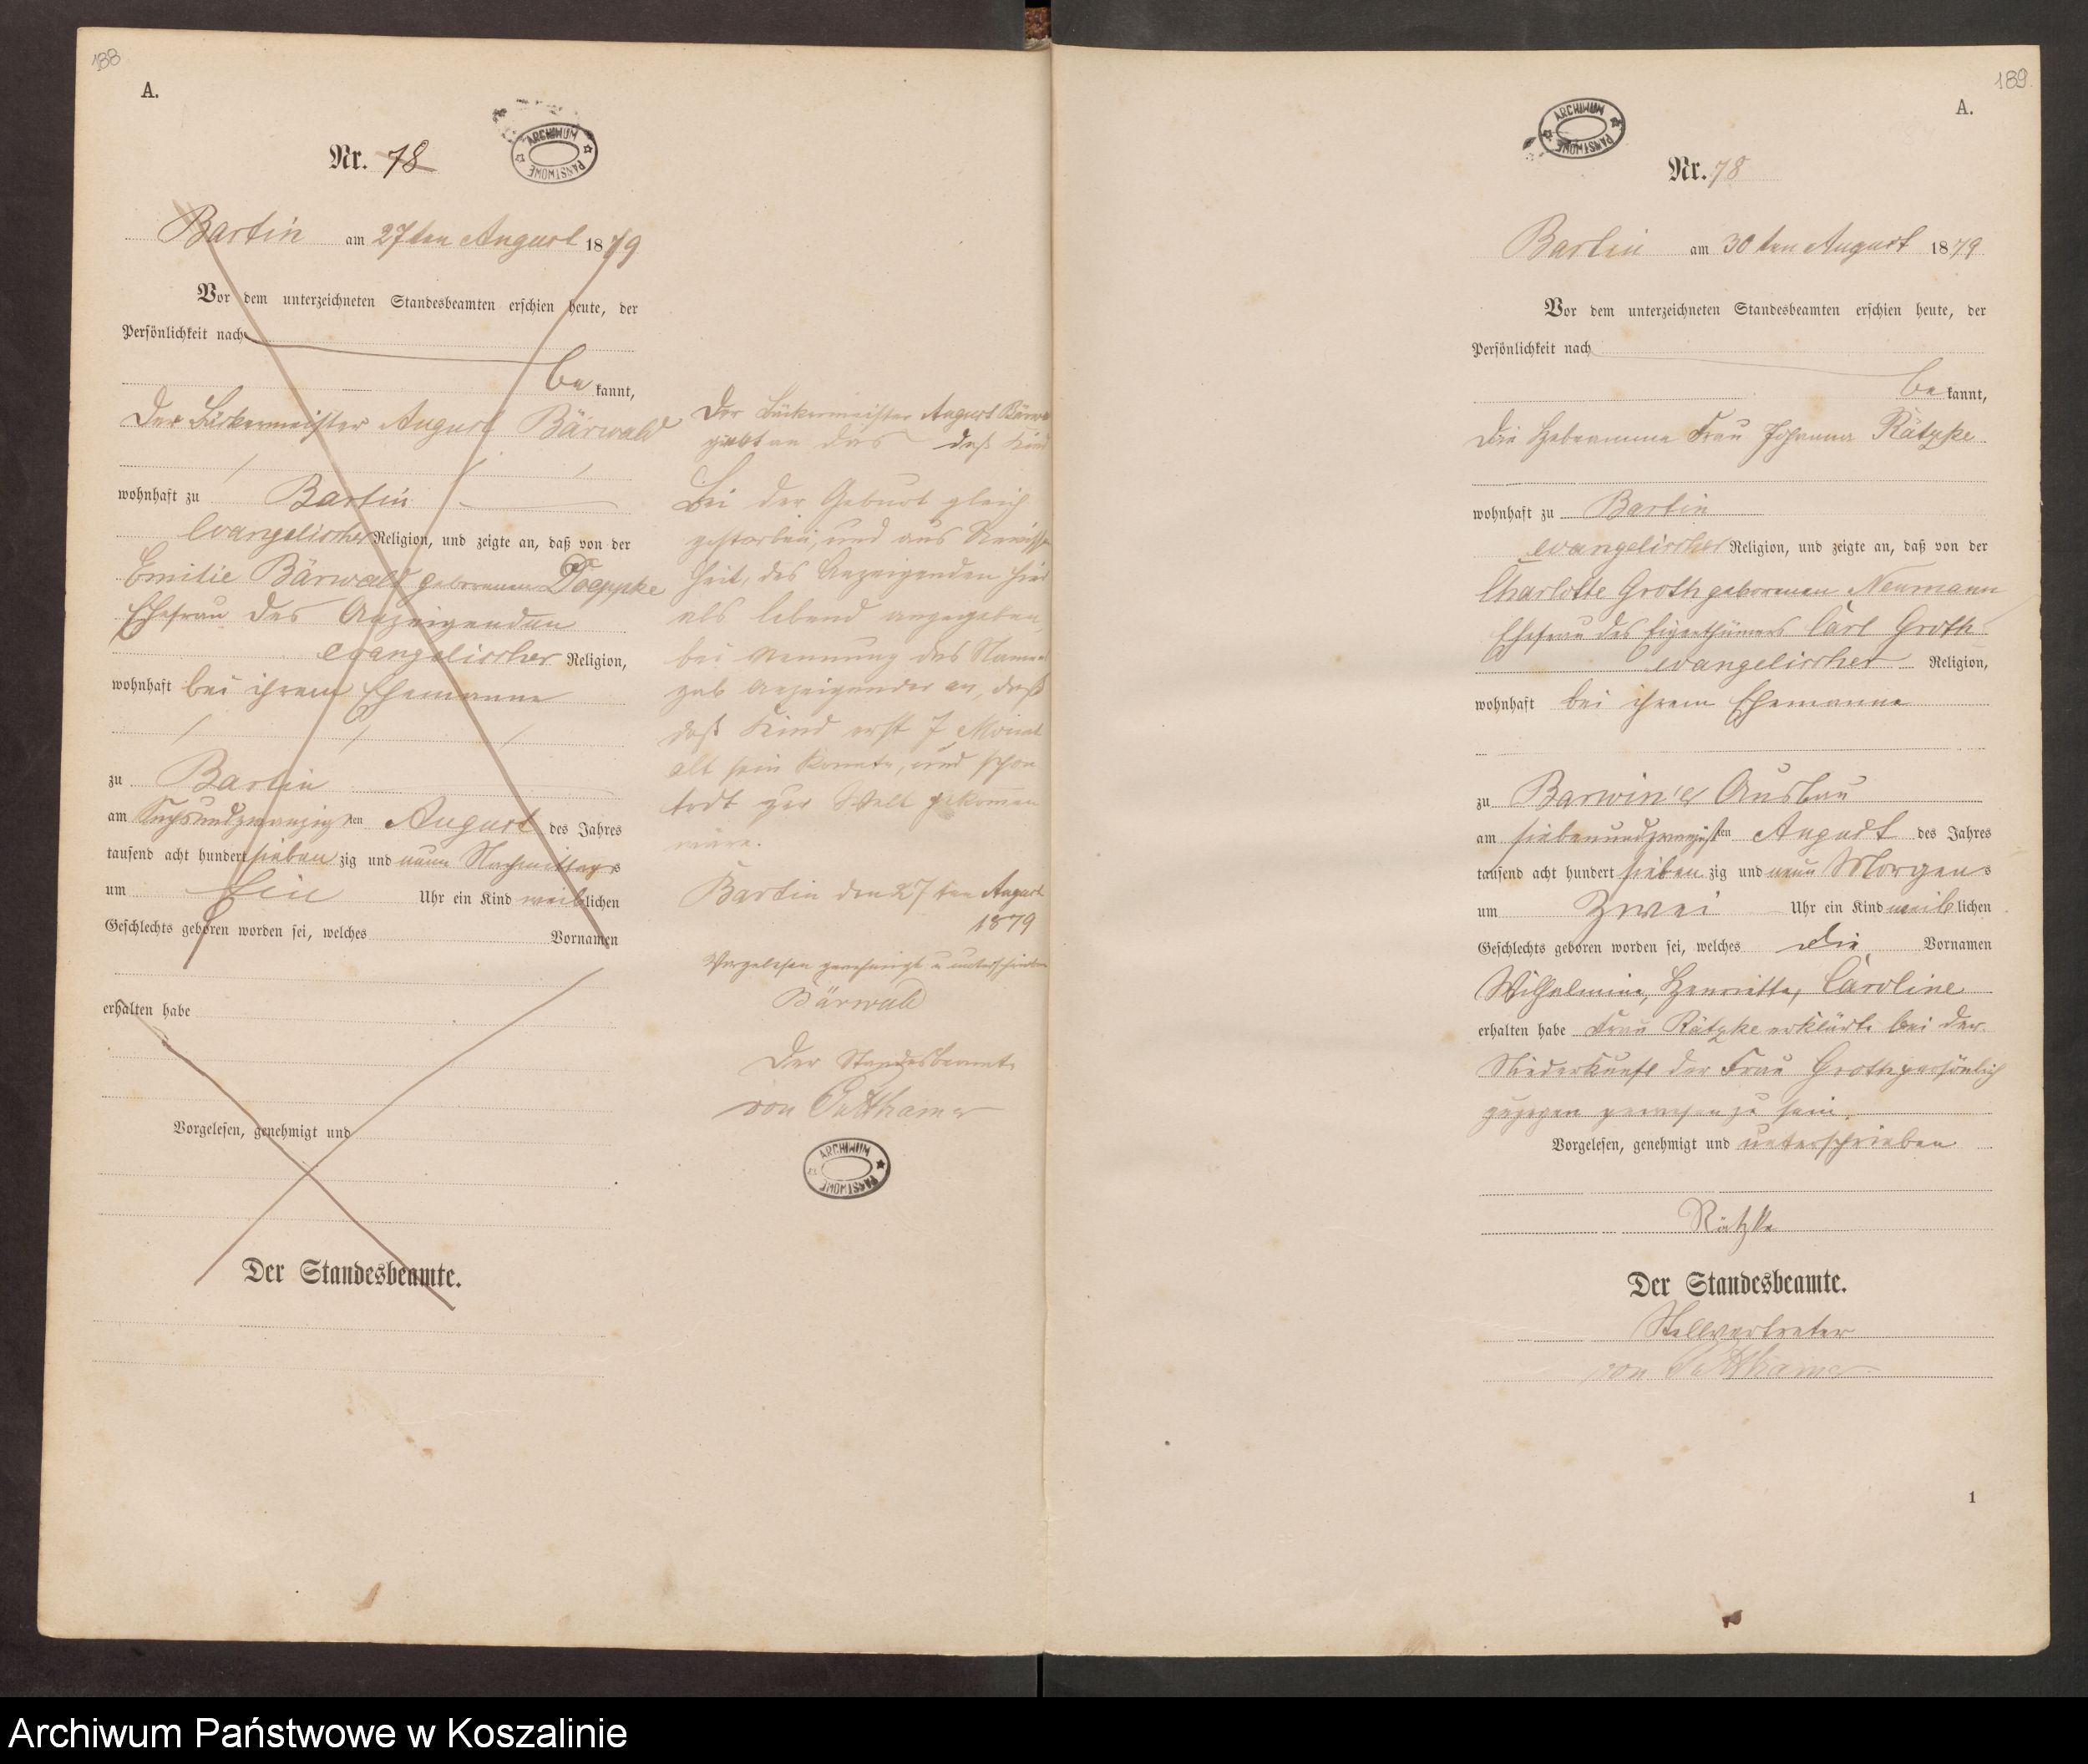 188
A.
ARCHIWUM PAŃSTWOWE
Nr. 78
Bartin am 27ten August 1879
Vor dem unterzeichneten Standesbeamten erschien heute, der
Persönlichkeit nach
be kannt,
Der Bäckermeister August Bärwald
wohnhaft zu Bartin
evangelischer Religion, und zeigte an, daß von der
Emilie Bärwald geborenen Doeppke
Ehefrau des Anzeigenden
evangelischer Religion,
wohnhaft bei ihrem Ehemanne
zu Bartin
am sechsundzwanzigsten August des Jahres
tausend acht hundert sieben zig und neun Nachmittags
um Ein Uhr ein Kind weiblichen
Geschlechts geboren worden sei, welches Vornamen
erhalten habe
Vorgelesen, genehmigt und
Der Standesbeamte.
Der Bäckermeister August Bärwa
daß Kind
Bei der Geburt gleich
gestorben, und aus
heit, des Anzeigenden hier
als lebend angegeben,
bei Nennung des Namens
gab Anzeigender an, daß
daß Kind erst 7 Monat
alt sein konnte, und schon
todt zur Welt gekommen
wäre.
Bartin den 27ten August
1879
Vorgelesen genehmigt u unterschrieben
Bärwald
Der Standesbeamte
von Puttkamer
ARCHIWUM PAŃSTWOWE
189
A.
ARCHIWUM PAŃSTWOWE
Nr. 78
Bartin am 30ten August 1879
Vor dem unterzeichneten Standesbeamten erschien heute, der
Persönlichkeit nach
be kannt,
Die Hebeamme Frau Johanna Rätzke
wohnhaft zu Bartin
evangelischer Religion, und zeigte an, daß von der
Charlotte Groth geborenen Neumann
Ehefrau des Eigenthümers Carl Groth
evangelischer Religion,
wohnhaft bei ihrem Ehemanne
zu Barwin'er Ausbau
am siebenundzwanzigsten August des Jahres
tausend acht hundert sieben zig und neun Morgens
um Zwei Uhr ein Kind weiblichen
Geschlechts geboren worden sei, welches die Vornamen
Wilhelmine, Henriette, Caroline
erhalten habe Frau Rätzke erklärte bei der
Niederkunft der Frau Groth persönlich
zugegen gewesen zu sein.
Vorgelesen, genehmigt und unterschrieben
Rätzke
Der Standesbeamte.
Stellvertreter
von Puttkamer
1
Archiwum Państwowe w Koszalinie